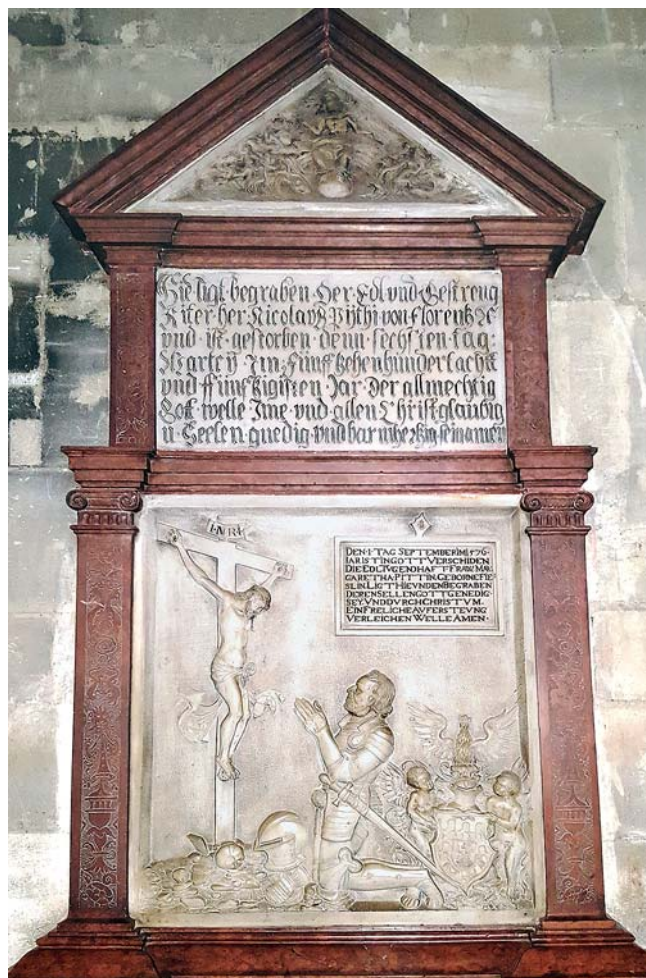 Hie ligt begraben Her Edl und Gestreng
Riter her Nicolaus von Florentz
und ist gestorben denn sechsten tag
Martij Im Funff zehenhundert acht
und ffunfkigisten Jar Der allmechtig
Gott welle Ime und allen Christglaubig
n Seelen gnedig und barmhertzig sein amen
INRI
DEN · I · TAG SEPTEMBER IM
IAR IST IN GOTT VERSCHIDEN
DIE EDL TVGENDHAFT FRAW MAR
GARETHA PITTIN GEBORNE FIE
SLIN LIGT HIE VNDEN BEGRABEN
DEREN SELLEN GOTT GENEDIG
SEY VND DVRCH CHRISTVM
EIN FRELICHE AVFERSTEVNG
VERLEICHEN WELLE AMEN ·